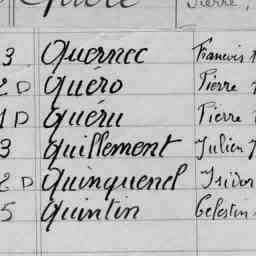 Pierre,
3 Quernec Francois
2 D Quéro Pierre
1 D Quéru Pierre
3 Quillement Julien J
2 D Quinquenel Isidor
5 Quintin Celestin